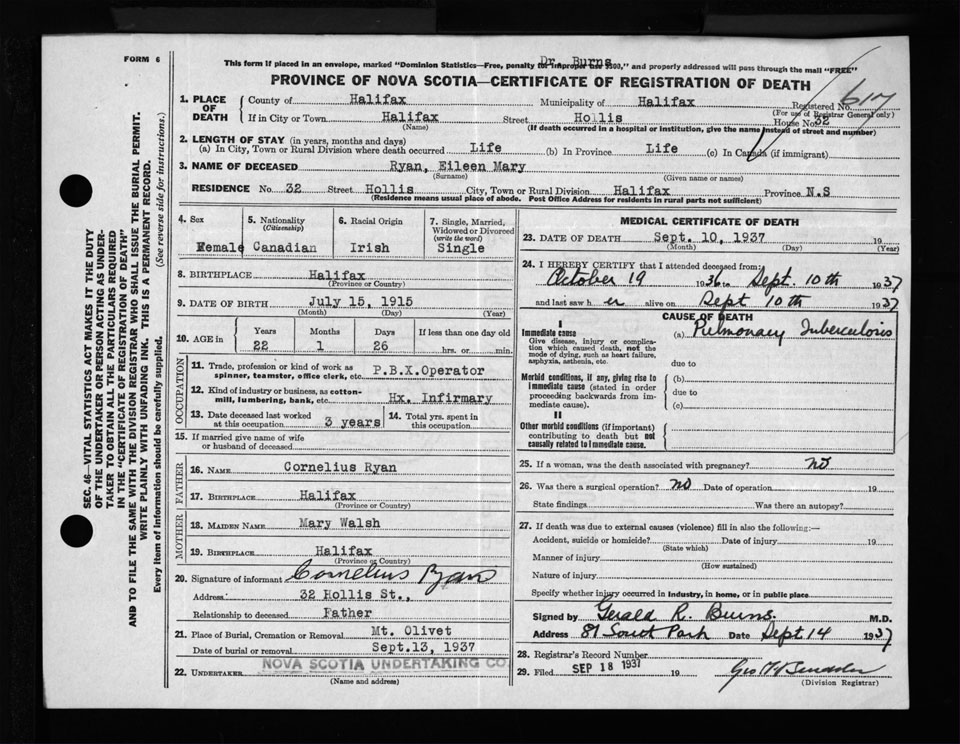 FORM 6
Dr. Burns
This form if placed in an envelope, marked "Dominion Statistics—Free, penalty for improper use $300," and properly addressed will pass through the mail "FREE"
PROVINCE OF NOVA SCOTIA—CERTIFICATE OF REGISTRATION OF DEATH
SEC. 46—VITAL STATISTICS ACT MAKES IT THE DUTY
OF THE UNDERTAKER OR PERSON ACTING AS UNDER-
TAKER TO OBTAIN ALL THE PARTICULARS REQUIRED
IN THE "CERTIFICATE OF REGISTRATION OF DEATH"
AND TO FILE THE SAME WITH THE DIVISION REGISTRAR WHO SHALL ISSUE THE BURIAL PERMIT.
WRITE PLAINLY WITH UNFADING INK. THIS IS A PERMANENT RECORD.
Every item of information should be carefully supplied. (See reverse side for instructions.)
1. PLACE OF DEATH County of Halifax Municipality of Halifax Registered No. 617
(For use of Registrar General only)
If in City or Town Halifax Street Hollis House No. 32
(Name) (If death occurred in a hospital or institution, give the name instead of street and number)
2. LENGTH OF STAY (in years, months and days)
(a) In City, Town or Rural Division where death occurred Life (b) In Province Life (c) In Canada (if immigrant)
3. NAME OF DECEASED Ryan, Eileen Mary
(Surname) (Given name or names)
RESIDENCE No. 32 Street Hollis City, Town or Rural Division Halifax Province N.S
(Residence means usual place of abode. Post Office Address for residents in rural parts not sufficient)
4. Sex Female
5. Nationality (Citizenship) Canadian
6. Racial Origin Irish
7. Single, Married, Widowed or Divorced (write the word) Single
8. BIRTHPLACE Halifax
(Province or Country)
9. DATE OF BIRTH July 15, 1915
(Month) (Day) (Year)
10. AGE in Years Months Days If less than one day old
22 1 26 hrs. or min.
OCCUPATION
11. Trade, profession or kind of work as spinner, teamster, office clerk, etc. P.B.X.Operator
12. Kind of industry or business, as cotton-mill, lumbering, bank, etc. Hx. Infirmary
13. Date deceased last worked at this occupation 3 years
14. Total yrs. spent in this occupation
15. If married give name of wife or husband of deceased
FATHER
16. NAME Cornelius Ryan
17. BIRTHPLACE Halifax
(Province or Country)
MOTHER
18. MAIDEN NAME Mary Walsh
19. BIRTHPLACE Halifax
(Province or Country)
20. Signature of informant Cornelius Ryan
Address 32 Hollis St.,
Relationship to deceased Father
21. Place of Burial, Cremation or Removal Mt. Olivet
Date of burial or removal Sept.13, 1937
22. UNDERTAKER NOVA SCOTIA UNDERTAKING CO.
(Name and address)
MEDICAL CERTIFICATE OF DEATH
23. DATE OF DEATH Sept. 10, 1937 19
(Month) (Day) (Year)
24. I HEREBY CERTIFY that I attended deceased from:
October 19 1936 to Sept. 10th 1937
and last saw her alive on Sept 10th 1937
CAUSE OF DEATH
I
Immediate cause (a) Pulmonary Tuberculosis
Give disease, injury or complication which caused death, not the mode of dying, such as heart failure, asphyxia, asthenia, etc.
due to
Morbid conditions, if any, giving rise to immediate cause (stated in order proceeding backwards from immediate cause).
(b)
due to
(c)
II
Other morbid conditions (if important) contributing to death but not causally related to immediate cause.
25. If a woman, was the death associated with pregnancy? no
26. Was there a surgical operation? no Date of operation 19
State findings Was there an autopsy?
27. If death was due to external causes (violence) fill in also the following:—
Accident, suicide or homicide? Date of injury 19
(State which)
Manner of injury
(How sustained)
Nature of injury
Specify whether injury occurred in Industry, in home, or in public place
Signed by Gerald R. Burns. M.D.
Address 81 South Park Date Sept 14 1937
28. Registrar's Record Number
29. Filed SEP 18 1937 19
(Division Registrar)